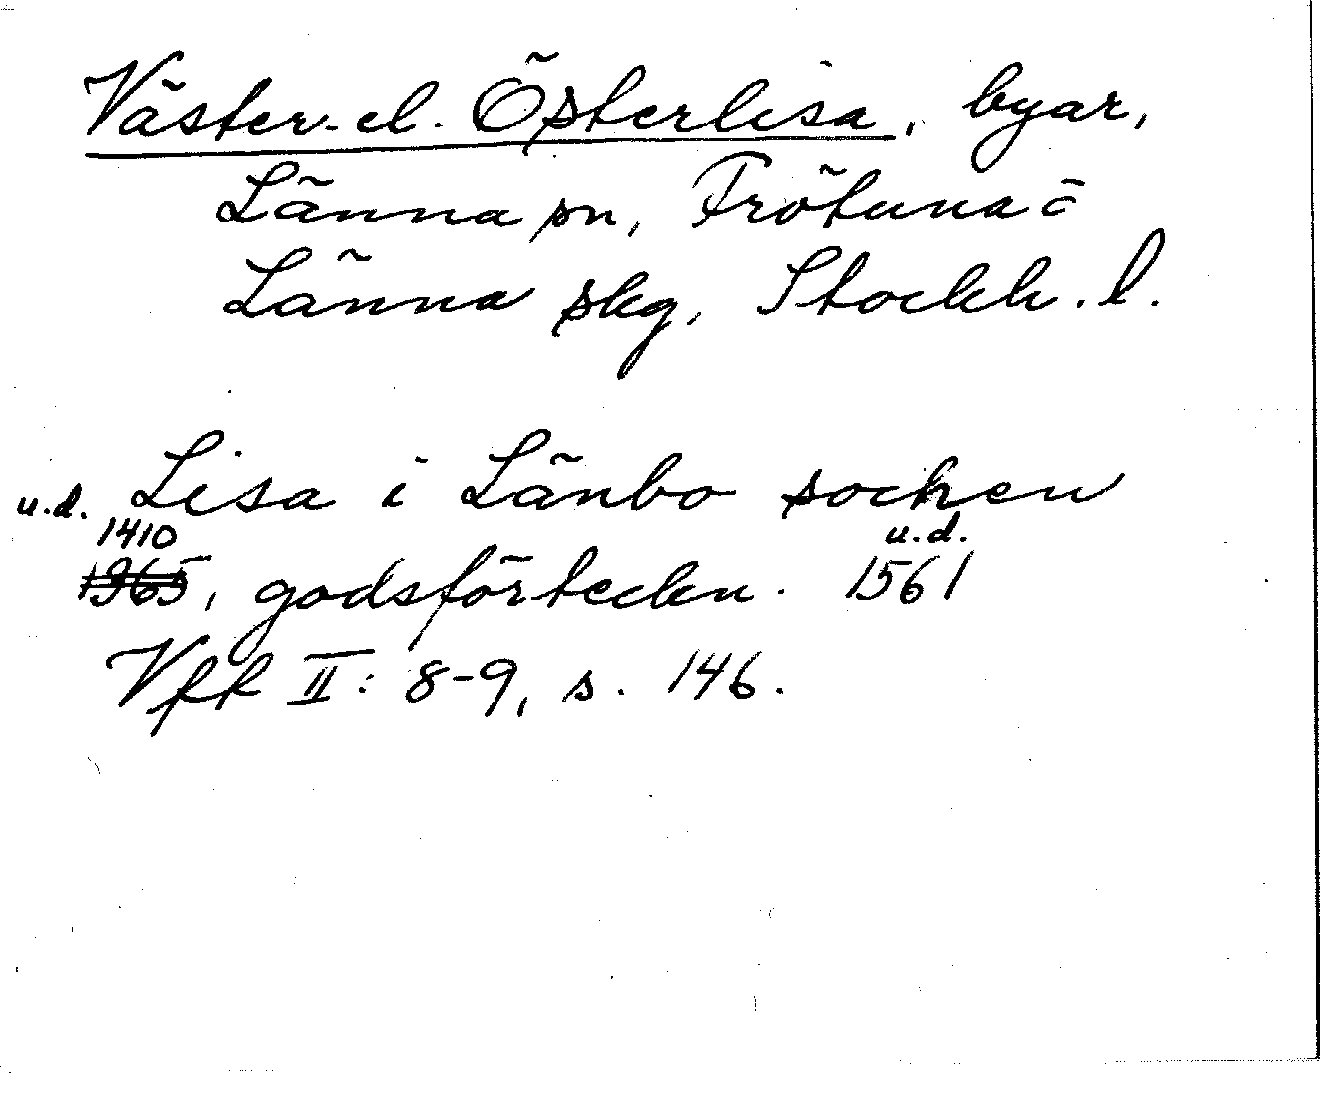 Väster- el. Österlisa, byar,
Länna sn, Frötuna =
Länna skg, Stockh. l.
u.d. Lisa i Länbo socken
1410 u.d.
1365, godsförteckn. 1561
Vff II: 8-9, s. 146.